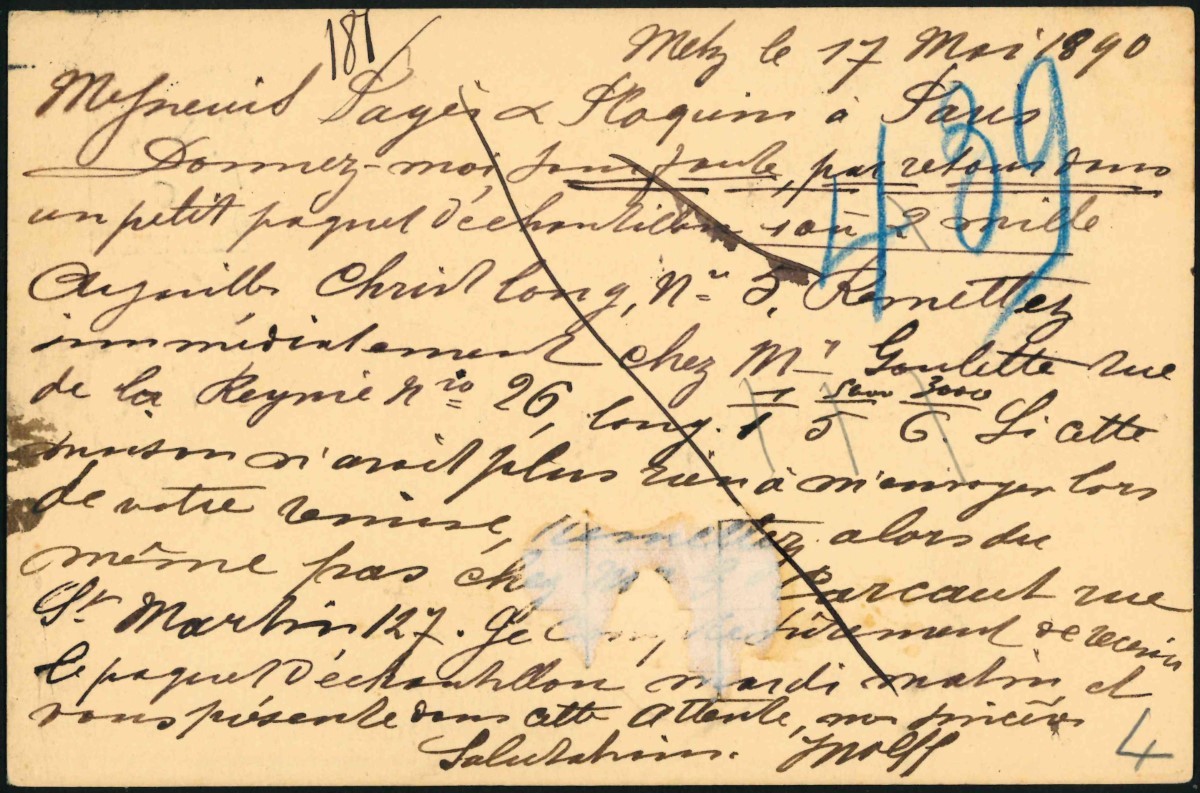 187
Metz le 17 Mai 1890
Pagès & à Paris
439
Donnez-moi sans faute, par retour dans
un petit paquet d'échantillon 1 ou 2 mille
Aiguilles Christ long, N° 5, Remettez
immédiatement chez Mr Goulette rue
de la Reynie Nro 26, long. 1/1 5000/5 3000/6. Si cette
maison n'avait plus rien à m'envoyer lors
de votre remise, Remettez alors du
même pas chez Mr Parcaut rue
St Martin 127. Je sûrement de recevoir
le paquet d'échantillon mardi matin et
vous présente dans cette attente, mes sincères
Salutations. JWolff
4